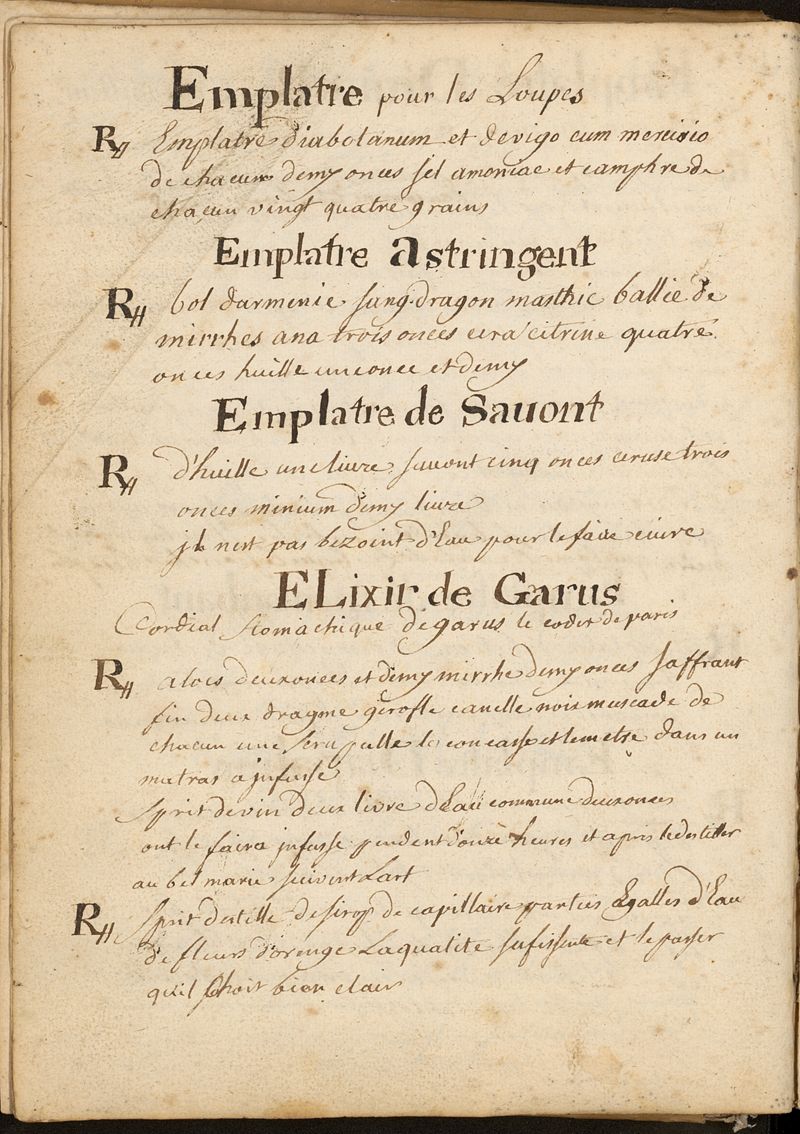 Emplatre pour les Loupes
R Emplatre diabotanum et devigo cum mercurio
de chacun demy onces sel amoniac et camphre de
chacun vingt quatre grains
Emplatre astringent
R bol darmenie sang dragon masthic ballie de
mirrhes ana trois onces cera citrine quatre
onces huille un once et demy
Emplatre de Sauont
R d'huille une livre sauont cinq onces ceruse trois
onces minium demy livre
jl nest pas bezoint d'Eau pour le faire cuire
ELixir de Garus
Cordial stomachique de garus le codex de paris
R aloes deux onces et demy mirrhe demy onces saffrant
fin deux dragme gerofle canelle noix muscade de
chacun une scrupulle le concasse et le metre dans un
matras a jnfusse
sprit de vin deux livre d'Eau commune deux onces
ont le faira jnfusse pendent douze heures et apres le destiller
au bel marie suivent Lart
R Sprit destille de sirop de capillaire parties Egalles d'Eau
de fleurs d'orenge La qualite sufissente et le passer
quil Shoit bien clair